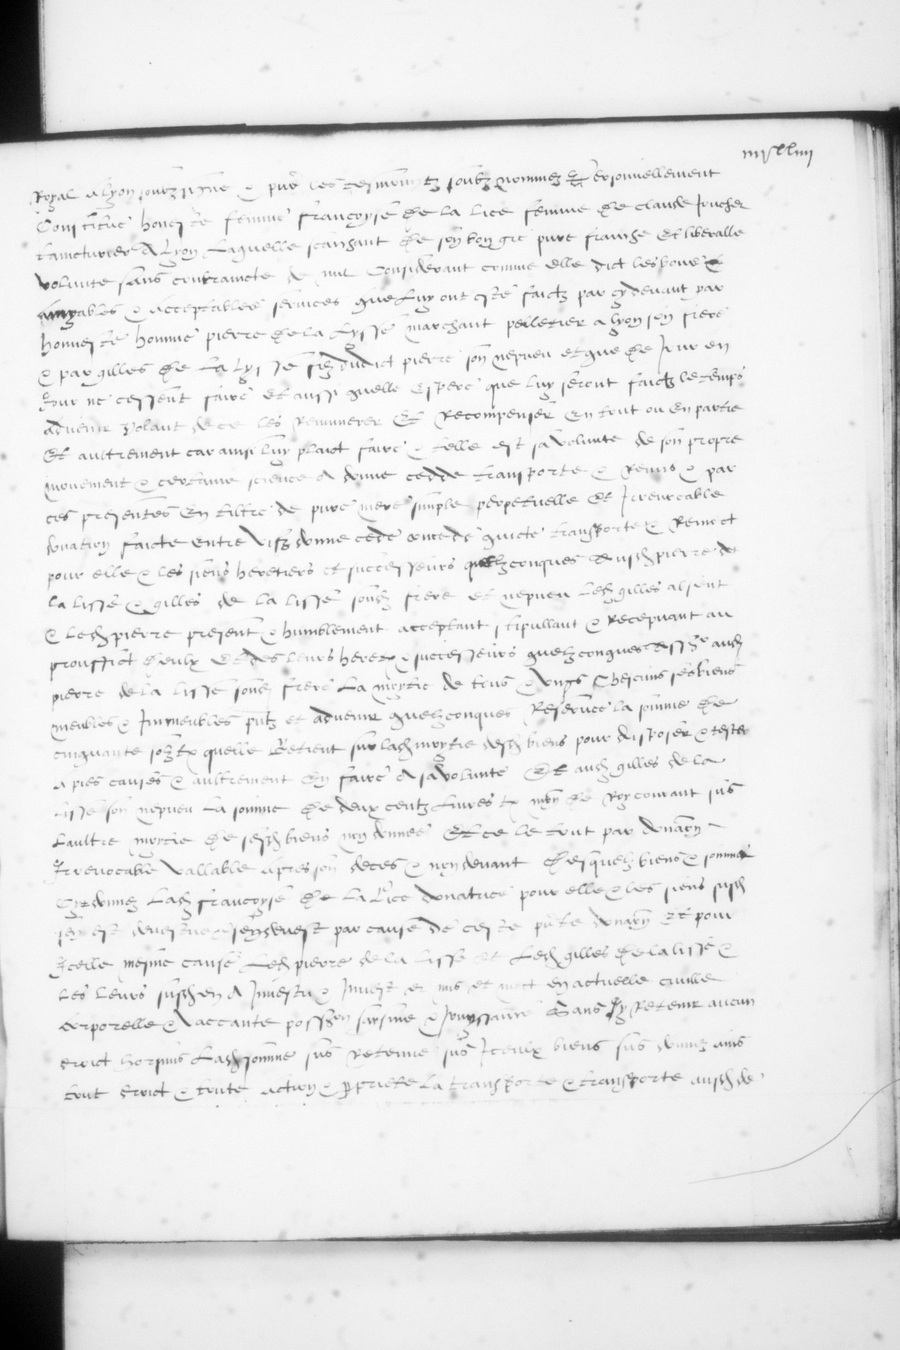 iiiicLiiii
Royal a lyon soubzsigne & pñs les tesmoingtz soubz nommez personnellement
Constitue honeste femme françoyse de la lice femme de claude
taincturier a lyon Laquelle scaichant de son bon gre pure franche et liberalle
volunte sans contraincte de nul Considerant comme elle dict les bons &
amyables & acceptables services que luy ont este faictz par cy devant par
honneste homme pierre de la lysse marchant pelletier a lyon son frere
& par gilles de la lysse filz dudict pierre son nepveu et que de jour en
jour ne cessent faire et aussi quelle espere que luy seront faictz le temps
advenir volant de ce les Remunerer et Recompenser en tout ou en partie
Et aultrement car ainsi luy plaict faire & telle est sa volunte de son propre
mouvement & certaine science a donne cedde transporte & Remis & par
ces presentes en tiltre de pure mere simple perpetuelle et Irrevocable
donation faicte entre vifz donne cede concede quicte transporte & Remect
pour elle & les siens heretiers et successeurs quelzconques ausd pierre de
la lisse & gilles de la lisse sond frere et nepveu led gilles absent
& led pierre present & humblement acceptant stipullant & Recepvant au
prouffict deulx et des leurs heret & successeurs quelzconques aud
pierre de la lisse sond frere La moytie de tous & ungs chescuns ses biens
meubles & Immeubles pñtz et advenir quelzconques Reservee la somme de
cinquante solz tz quelle Retient sur lad moytie desd biens pour disposer & tester
a pies causes & aultrement en faire a sa volunte Et aud gilles de la
lisse son nepveu la somme de deux centz livres tz mon de Roy courant sus
laultre moytie de sesd biens non donnee Et ce le tout par donaon
Irrevocable vallable apres son deces & non devant desquelz biens & somme
Cy donnez lad françoyse de la lice donatrice pour elle & les siens susd
sen est devestue & sen devest par cause de ceste pñte donaon et pour
Icelle mesme cause led pierre de la lisse et led gilles de la lisse &
les leurs susd en a Investu & Invest et mis et mect en actuelle civille
corporelle & vaccante possion saisine & jouyssance Sans y Retenir aucun
droict horsmis lad somme sus Retenue sus Iceulx biens sus donnez ains
tout droict & toute action & proprieté La transporte & transporte ausd de